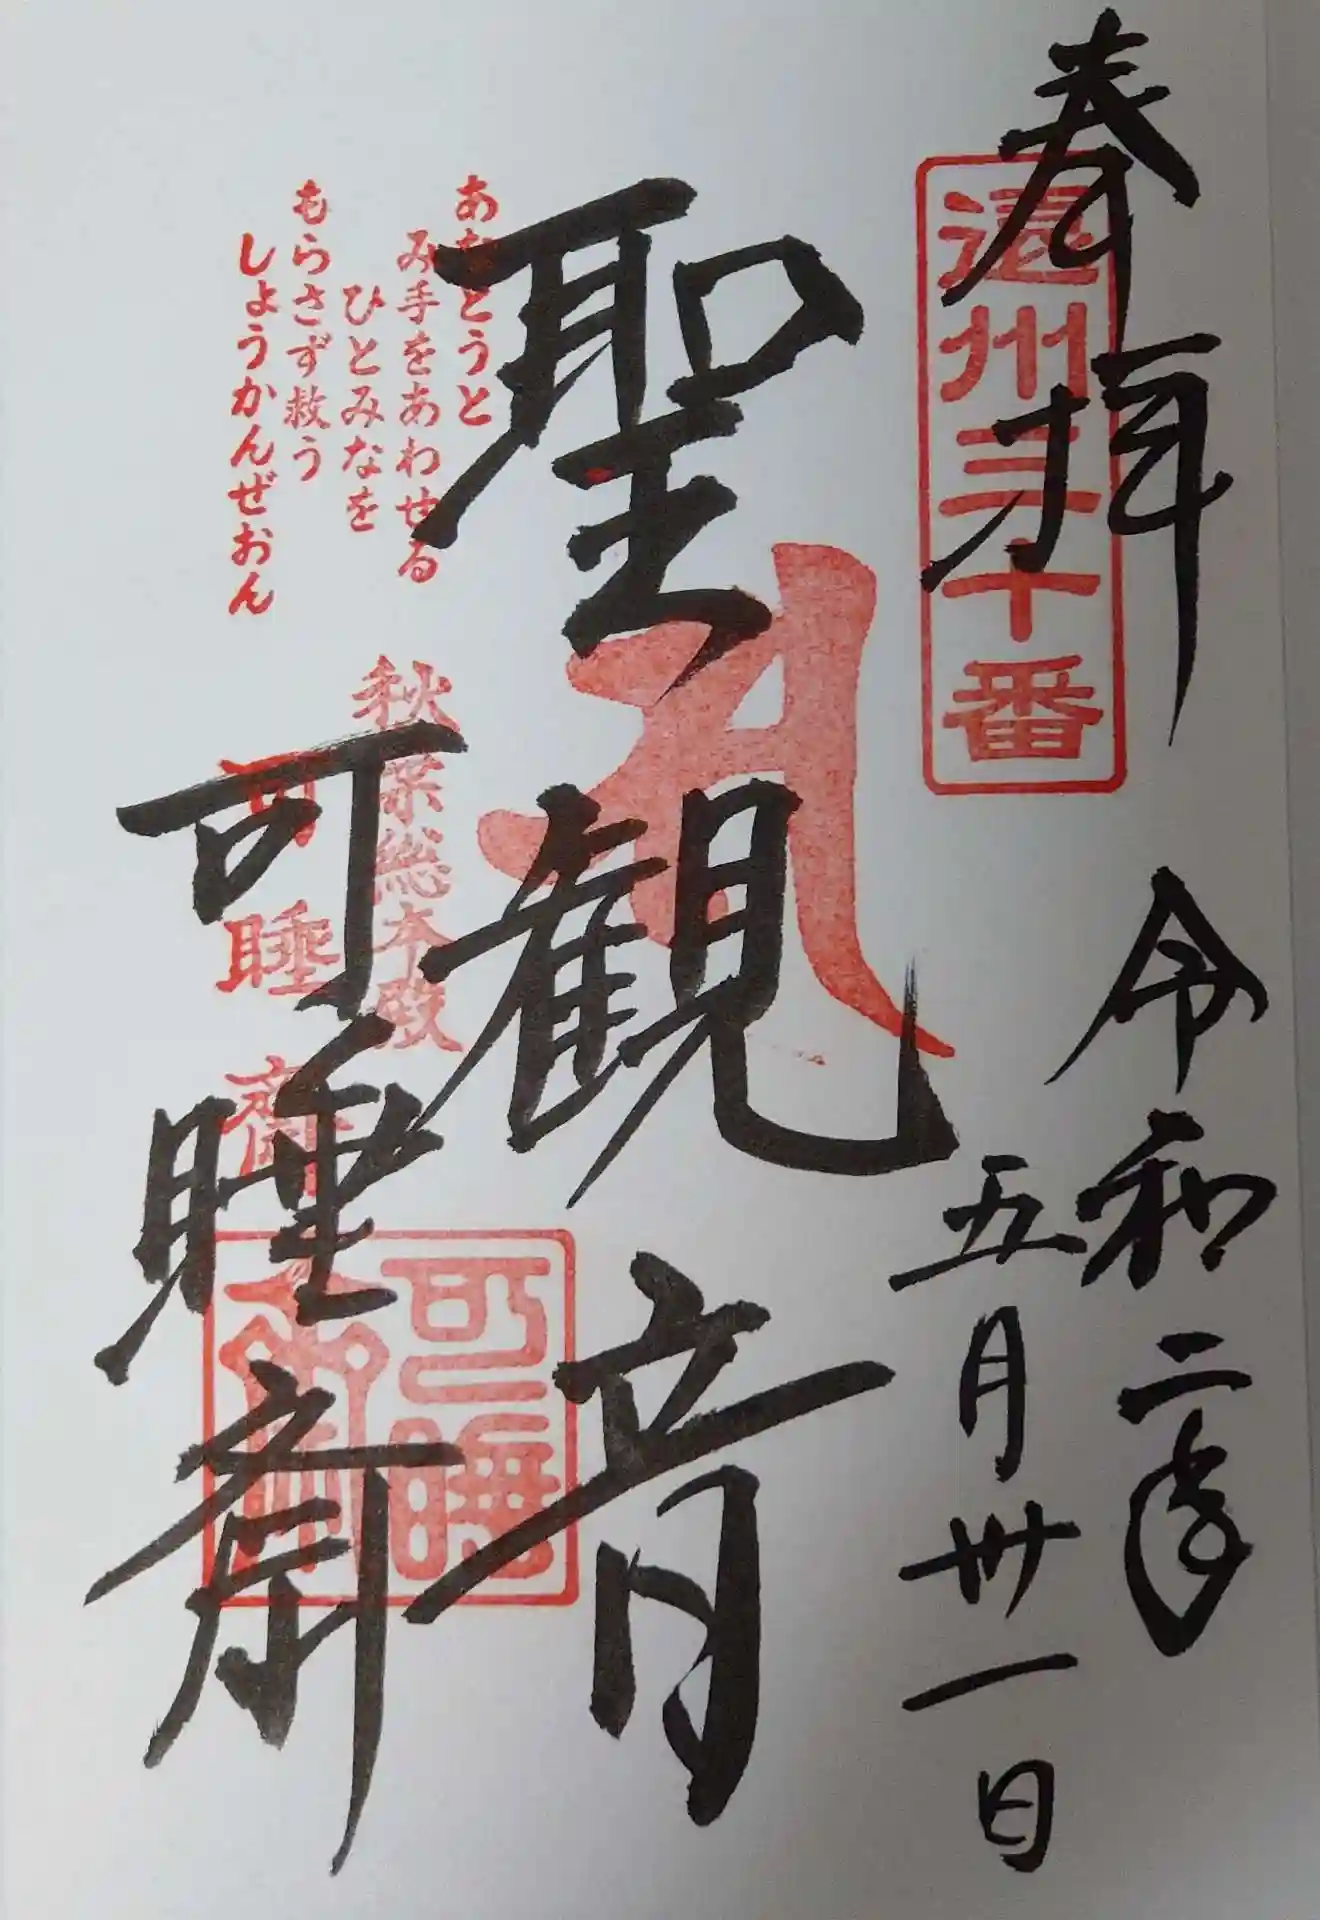 奉拝
遠州三十番
令和二年
五月卅一日
聖観音
あなとうと
み手をあわせる
ひとみなを
もらさず救う
しょうかんぜおん
秋葉総本殿
可睡斎
可睡齋